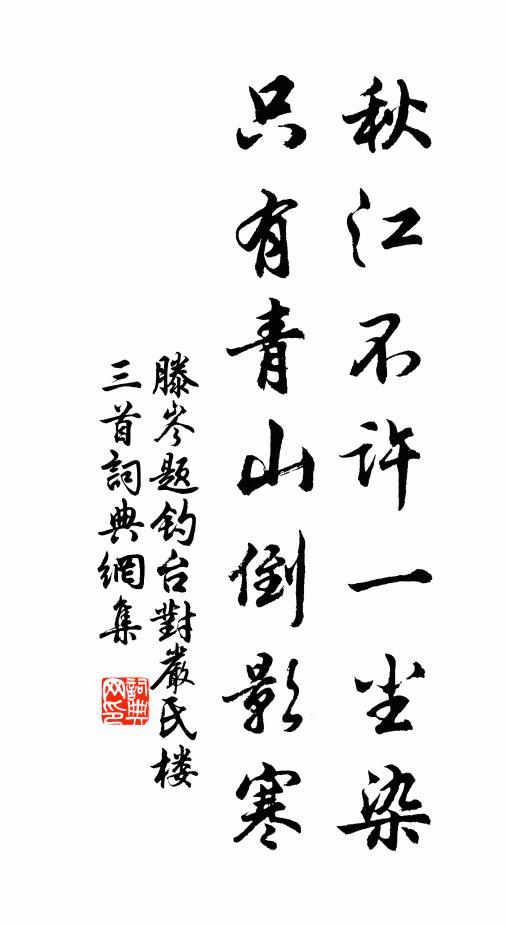 秋江不许一尘染
只有青山倒影寒
滕岑题钓台對嚴氏楼
三首詞典網集
詞典
网印